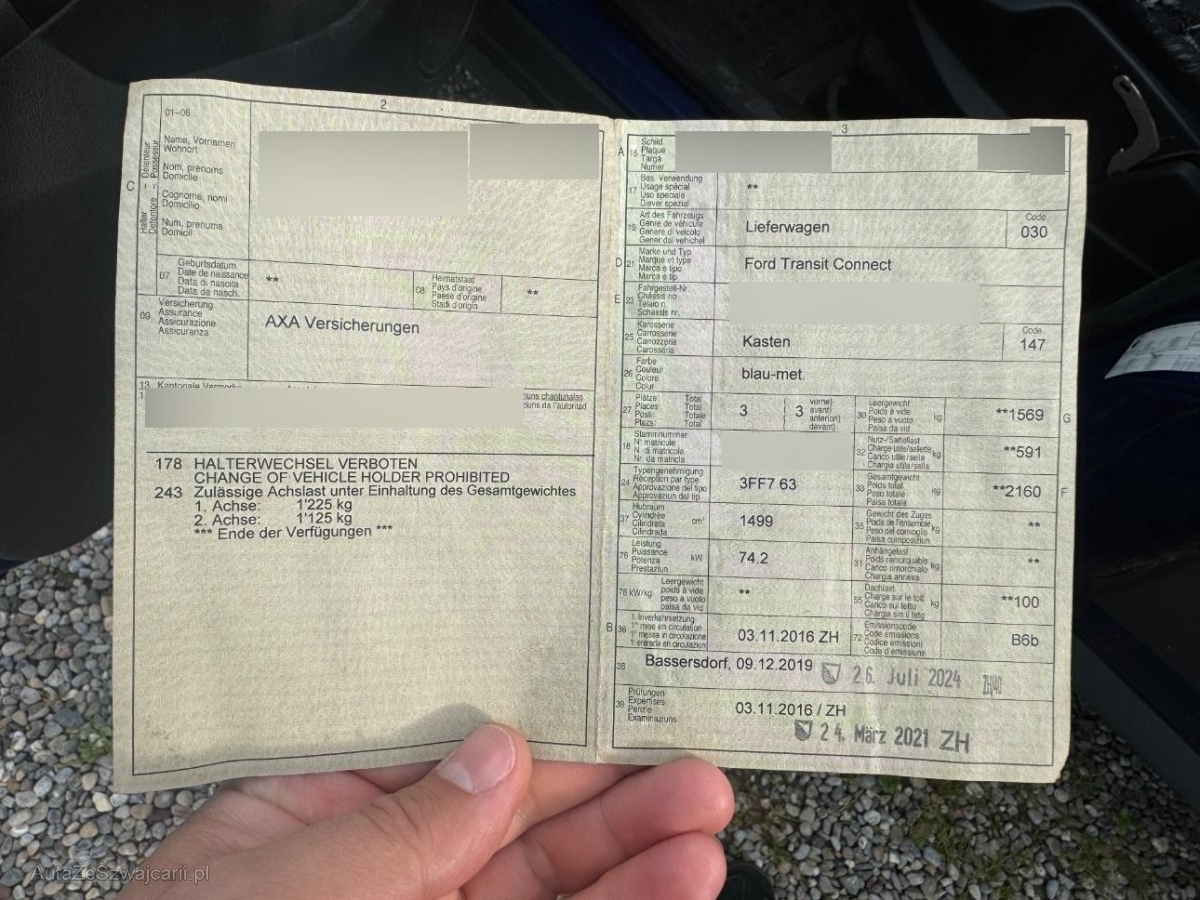 2
01-06
Name, Vornamen
Wohnort
Nom, prenoms
Domicile
Cognome, nomi
Domicilio
Num, prenums
Domicil
C
Halter Détenteur
Detentore Possessur
07
Geburtsdatum
Date de naissance
Data di nascita
Data da nasch.
**
08
Heimatstaat
Pays d'origine
Paese d'origine
Stadi d'origin
**
09
Versicherung
Assurance
Assicurazione
Assicuranza
AXA Versicherungen
13 Kantonale Vermerke
uns chantunalas
uns da l'autoritad
178 HALTERWECHSEL VERBOTEN
CHANGE OF VEHICLE HOLDER PROHIBITED
243 Zulässige Achslast unter Einhaltung des Gesamtgewichtes
1. Achse: 1'225 kg
2. Achse: 1'125 kg
*** Ende der Verfügungen ***
3
A 15
Schild
Plaque
Targa
Numer
17
Bes. Verwendung
Usage spécial
Uso speciale
Diever spezial
**
19
Art des Fahrzeugs
Genre de véhicule
Genere di veicolo
Gener dal vehichel
Lieferwagen
Code
030
D 21
Marke und Typ
Marque et type
Marca e tipo
Marca e tip
Ford Transit Connect
E 23
Fahrgestell-Nr.
Châssis no
Telaio n.
Schassis nr.
25
Karosserie
Carrosserie
Carrozzeria
Carossaria
Kasten
Code
147
26
Farbe
Couleur
Colore
Colur
blau-met.
27
Plätze Total
Places Total
Posti Totale
Plazs Total
3
( 3
vorne)
avant)
anteriori)
davant)
30
Leergewicht
Poids à vide
Peso a vuoto
Paisa da vid
kg
**1569
G
18
Stammnummer
N° matricule
N. di matricola
Nr. da matricla
32
Nutz-/Sattellast
Charge utile/sellette
Carico utile/sella
Chargia utila/sella
kg
**591
24
Typengenehmigung
Réception par type
Approvazione del tipo
Approvaziun dal tip
3FF7 63
33
Gesamtgewicht
Poids total
Peso totale
Paisa totala
kg
**2160
F
37
Hubraum
Cylindrée
Cilindrata
Cilindrada
cm³
1499
35
Gewicht des Zuges
Poids de l'ensemble
Peso del convoglio
Paisa cumposiziun
kg
**
76
Leistung
Puissance
Potenza
Prestaziun
kW
74.2
31
Anhängelast
Poids remorquable
Carico rimorchiato
Chargia annexa
kg
**
78 kW/kg
Leergewicht
poids à vide
peso a vuoto
paisa da vid
**
55
Dachlast
Charge sur le toit
Carico sul tetto
Chargia sin il tetg
kg
**100
B 36
1. Inverkehrsetzung
1re mise en circulation
1a messa in circolazione
1. entrada en circulaziun
03.11.2016 ZH
72
Emissionscode
Code émissions
Codice emissioni
Code d'emissiuns
B6b
38
Bassersdorf, 09.12.2019
26. Juli 2024 ZH/40
39
Prüfungen
Expertises
Perizie
Examinaziuns
03.11.2016 / ZH
24. März 2021 ZH
AutaZeSzwajcarii.pl